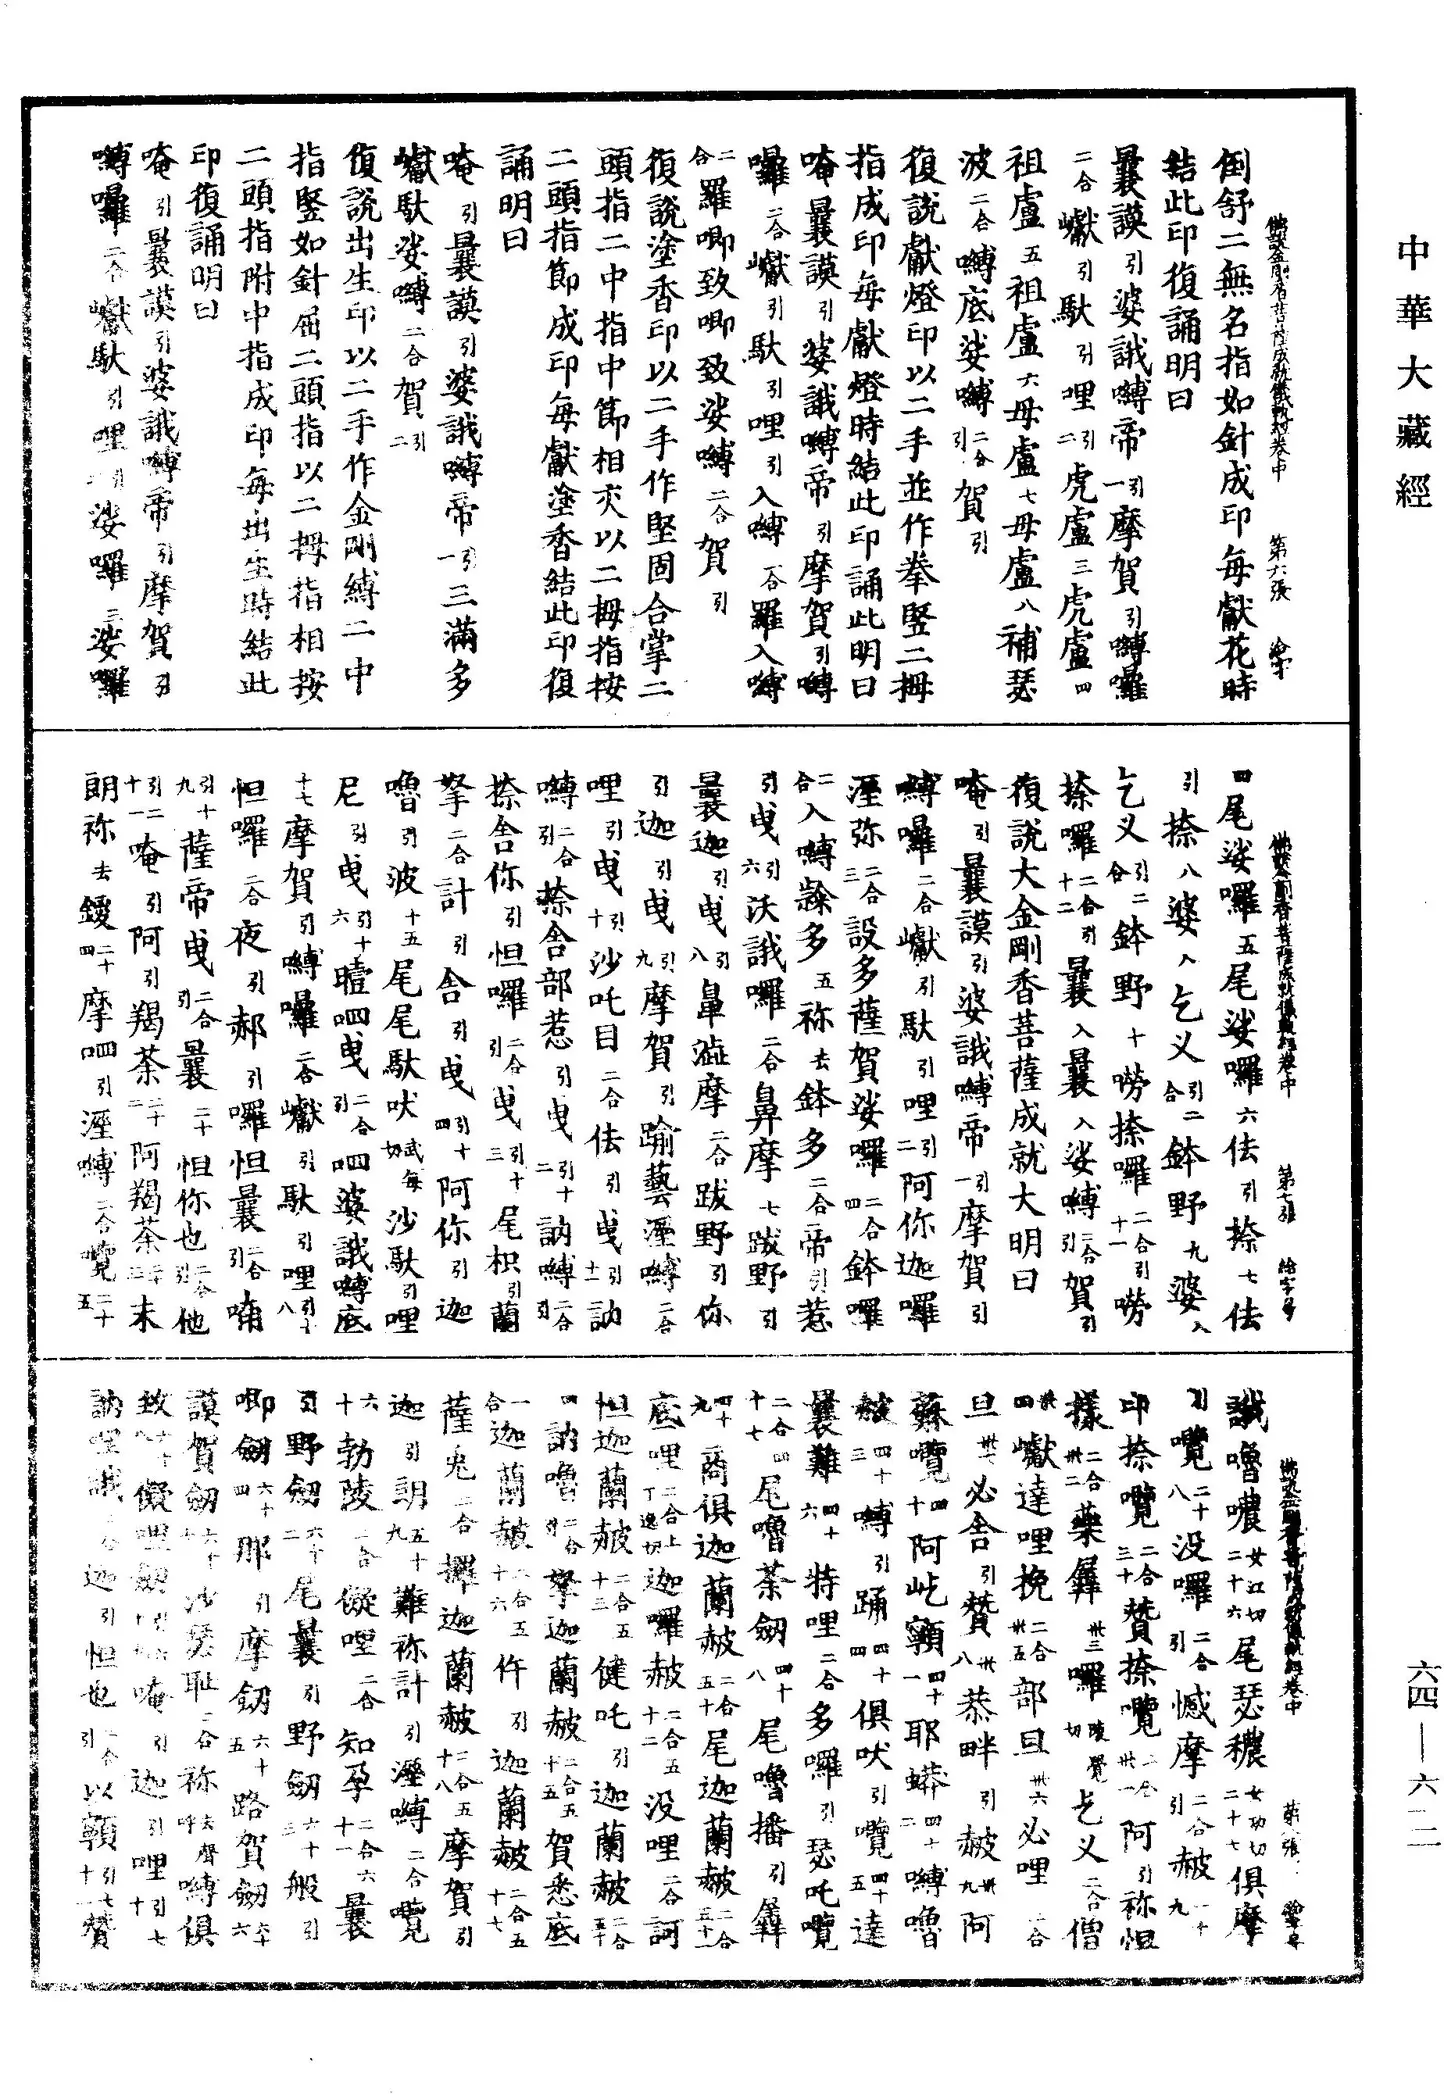 中華大藏經
六四—六一二
佛說金剛香菩薩成就儀軌經卷中　第六張
倒舒二無名指如針成印每獻花時
結此印復誦明曰
曩謨引婆誐嚩帝一引摩賀引嚩囉
二合巘引馱引哩二引虎盧三虎盧四
祖盧五祖盧六母盧七母盧八補瑟
波二合嚩底娑嚩二合引賀引
復說獻燈印以二手並作拳豎二拇
指成印每獻燈時結此印誦此明曰
唵曩謨引婆誐嚩帝引摩賀引嚩
囉二合巘引馱引哩引入嚩二合羅入嚩
二合羅唧致唧致娑嚩二合賀引
復說塗香印以二手作堅固合掌二
頭指二中指中節相交以二拇指按
二頭指節成印每獻塗香結此印復
誦明曰
唵引曩謨引婆誐嚩帝一引三滿多
巘馱娑嚩二合賀二引
復說出生印以二手作金剛縛二中
指豎如針屈二頭指以二拇指相按
二頭指附中指成印每出生時結此
印復誦明曰
唵引曩謨引婆誐嚩帝引摩賀引
嚩囉二合巘馱引哩二引娑囉三娑囉
佛說金剛香菩薩成就儀軌經卷中　第七張
四尾娑囉五尾娑囉六佉引捺七佉
引捺八婆入乞叉二合引鉢野九婆入
乞叉二合引鉢野十嘮捺囉二合引十一嘮
捺囉二合引十二曩入曩入娑嚩二合引賀引
復說大金剛香菩薩成就大明曰
唵引曩謨引婆誐嚩帝一引摩賀引
嚩囉二合巘引馱引哩二引阿你迦囉
濕弥二合三設多薩賀娑囉二合四鉢囉
二合入嚩䠡多五祢去鉢多二合帝引惹
引曳六引沃誐囉二合鼻摩七跋野引
曩迦引曳八引鼻澁摩二合跋野引你
引迦引曳九引摩賀引踰藝濕嚩二合
哩引曳十引沙吒目二合佉引曳十一引訥
嚩二合引捺舍部惹引曳十二引訥嚩二合引
捺舍你引怛囉二合引曳十三引尾枳引蘭
拏二合計引舍引曳十四引阿你引迦
嚕引波十五尾尾馱吠武每切沙馱引哩
尼引曳十六引曀呬曳二合引呬婆誐嚩底
十七摩賀引嚩囉二合巘引馱引哩十八引
怛囉二合夜引郝引囉怛曩二合引喃
十九引薩帝曳二合引曩二十怛你也二合引他
二十一引唵引阿引羯茶二十二阿羯茶二十三末
朗祢去鑁二十四摩呬引濕嚩二合囕二十五
佛說金剛香菩薩成就儀軌經卷中　第八張
誐嚕噥女江切二十六尾瑟穠女功切二十七俱摩
引囕二十八没囉二合引憾摩二合引赧二十九
印捺囕二合三十贊捺囕二合卅一阿引祢怛
樣二合卅二藥屖卅三囉乞叉二合僧
卅四巘達哩挽二合卅五部旦卅六必哩二合
旦卅七必舍引贊卅八恭畔引赧卅九阿
蘇囕四十阿屹顙四十一耶蟒四十二嚩嚕
赧四十三嚩引踊四十四俱吠引囕四十五達
曩難四十六特哩二合多囉引瑟吒囕
二合四十七尾嚕茶劒四十八尾嚕播引羼
四十九商俱迦蘭赧二合五十尾迦蘭赧二合五十一
底哩二合上丁逸切迦囉赧二合五十二没哩二合訶
怛迦蘭赧二合五十三健吒引迦蘭赧二合五十
四訥嚕引二合拏迦蘭赧二合五十五賀悉底
二合迦蘭赧二合五十六仵引迦蘭赧二合五十七
薩兎二合攞迦蘭赧二合五十八摩賀引
迦引朗五十九難祢計引濕嚩二合囕
六十勃陵二合儗哩二合知孕二合六十一曩
引野劒六十二尾曩引野劒六十三般引
唧劒六十四那引摩劒六十五路賀劒六十六
謨賀劒六十七沙瑟耻二合祢去聲呼嚩俱
致六十八儗哩劒六十九唵引迦引哩七十
訥哩誐二合迦引怛也二合引以顙七十一引贊